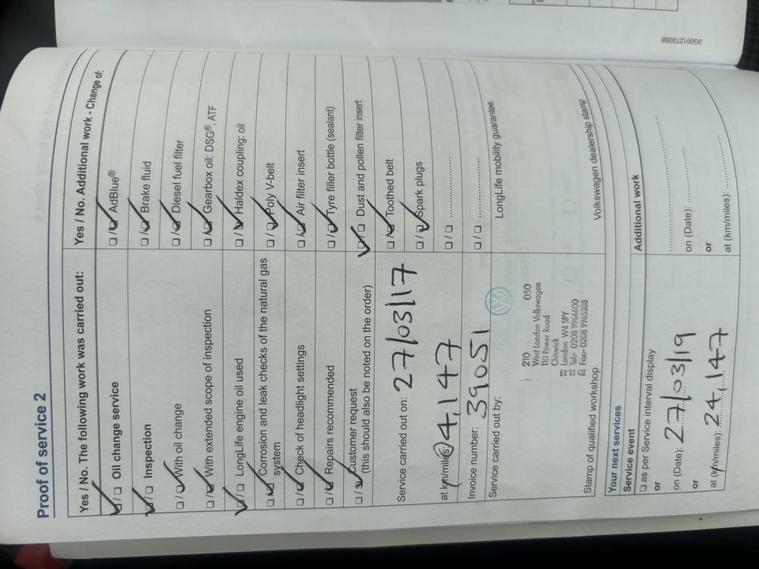 3G0012720BB
Proof of service 2
Yes / No. The following work was carried out:
☐/☐ Oil change service
☐/☐ Inspection
☐/☐ With oil change
☐/☐ With extended scope of inspection
☐/☐ LongLife engine oil used
☐/☐ Corrosion and leak checks of the natural gas
system
☐/☐ Check of headlight settings
☐/☐ Repairs recommended
☐/☐ Customer request
(this should also be noted on the order)
Yes / No. Additional work - Change of:
☐/☐ AdBlue®
☐/☐ Brake fluid
☐/☐ Diesel fuel filter
☐/☐ Gearbox oil: DSG®, ATF
☐/☐ Haldex coupling: oil
☐/☐ Poly V-belt
☐/☐ Air filter insert
☐/☐ Tyre filler bottle (sealant)
☐/☐ Dust and pollen filter insert
☐/☐ Toothed belt
☐/☐ Spark plugs
☐/☐
☐/☐
Service carried out on: 27/03/17
at km/miles: 4,147
Invoice number: 39051
Service carried out by:
LongLife mobility guarantee:
210 050
West London Volkswagen
110 Power Road
Chiswick
London W4 5PY
Tele: 0208 9966600
Fax: 0208
Stamp of qualified workshop
Volkswagen dealership stamp
Your next services
Service event
☐ as per Service interval display
or
on (Date): 27/03/19
or
at (km/miles): 24,147
Additional work
on (Date):
or
at (km/miles):